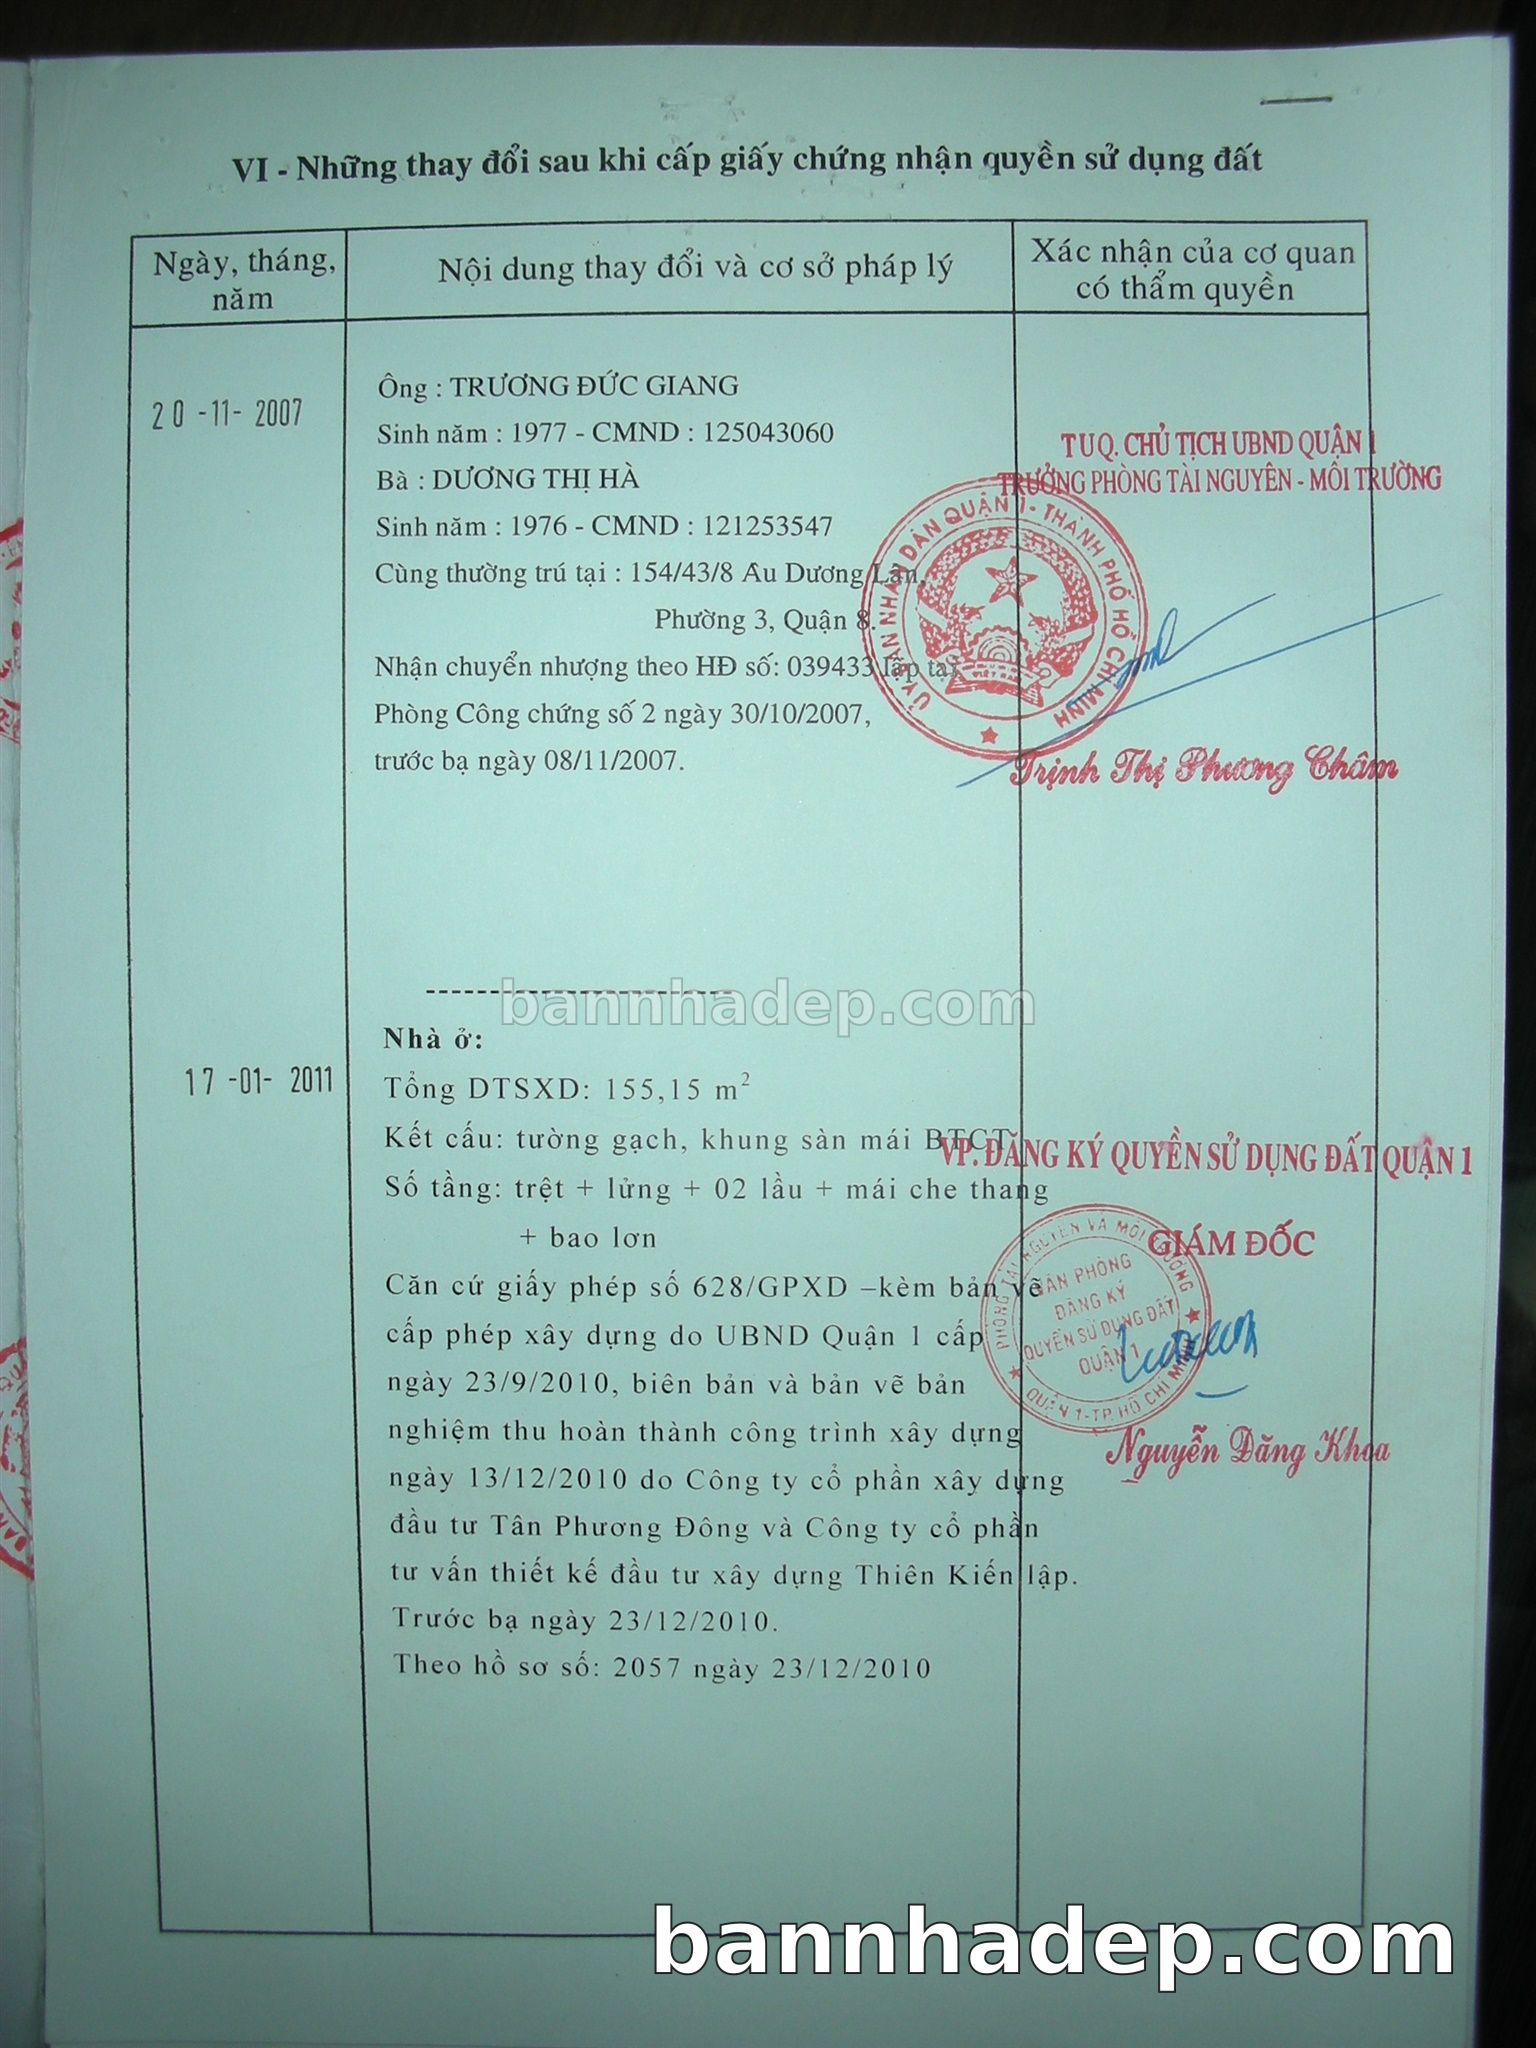 VI - Những thay đổi sau khi cấp giấy chứng nhận quyền sử dụng đất
Ngày, tháng,
năm
Nội dung thay đổi và cơ sở pháp lý
Xác nhận của cơ quan
có thẩm quyền
20 -11- 2007
Ông : TRƯƠNG ĐỨC GIANG
Sinh năm : 1977 - CMND : 125043060
Bà : DƯƠNG THỊ HÀ
Sinh năm : 1976 - CMND : 121253547
Cùng thường trú tại : 154/43/8 Âu Dương Lân,
Phường 3, Quận 8.
Nhận chuyển nhượng theo HĐ số: 039433 lập tại
Phòng Công chứng số 2 ngày 30/10/2007,
trước bạ ngày 08/11/2007.
TUQ. CHỦ TỊCH UBND QUẬN 1
TRƯỞNG PHÒNG TÀI NGUYÊN - MÔI TRƯỜNG
ỦY BAN NHÂN DÂN QUẬN 1 - THÀNH PHỐ HỒ CHÍ MINH
VIỆT NAM
Trịnh Thị Phương Châm
bannhadep.com
17 -01- 2011
Nhà ở:
Tổng DTSXD: 155,15 m²
Kết cấu: tường gạch, khung sàn mái BTCT
Số tầng: trệt + lửng + 02 lầu + mái che thang
+ bao lơn
Căn cứ giấy phép số 628/GPXD –kèm bản vẽ
cấp phép xây dựng do UBND Quận 1 cấp
ngày 23/9/2010, biên bản và bản vẽ bản
nghiệm thu hoàn thành công trình xây dựng
ngày 13/12/2010 do Công ty cổ phần xây dựng
đầu tư Tân Phương Đông và Công ty cổ phần
tư vấn thiết kế đầu tư xây dựng Thiên Kiến lập.
Trước bạ ngày 23/12/2010.
Theo hồ sơ số: 2057 ngày 23/12/2010
VP. ĐĂNG KÝ QUYỀN SỬ DỤNG ĐẤT QUẬN 1
GIÁM ĐỐC
PHÒNG TÀI NGUYÊN VÀ MÔI TRƯỜNG
VĂN PHÒNG
ĐĂNG KÝ
QUYỀN SỬ DỤNG ĐẤT
QUẬN 1
QUẬN 1-TP. HỒ CHÍ MINH
Nguyễn Đăng Khoa
bannhadep.com